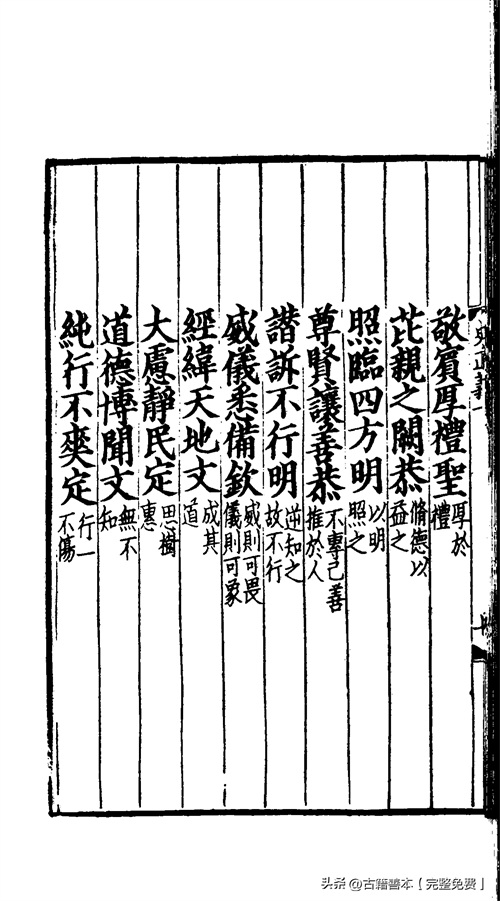 敬賓厚禮聖 厚於禮
芘親之闕恭 脩德以益之
照臨四方明 以明照之
尊賢讓善恭 不專己善推於人
譖訴不行明 逆知之故不行
威儀悉備欽 威則可畏儀則可象
經緯天地文 成其道
大慮靜民定 思樹惠
道德博聞文 無不知
純行不爽定 行一不傷
头条 @古籍善本【完整免费】